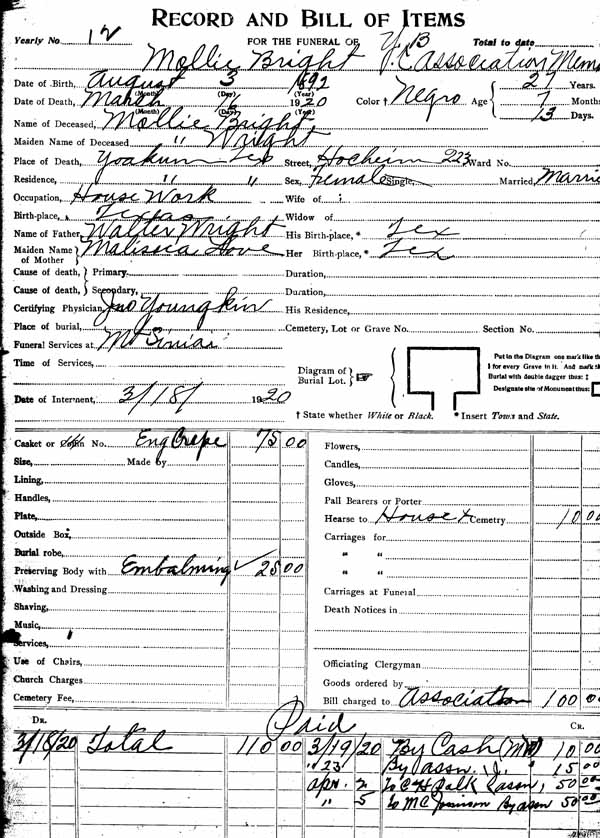 RECORD AND BILL OF ITEMS
Yearly No. 12 FOR THE FUNERAL OF Y.B. Total to date
Mollie Bright Association Mem
Date of Birth, August 3 1892 27 Years.
Date of Death, March 16 1920 Color † Negro Age 7 Months
(Month) (Day) (Year) 13 Days.
Name of Deceased, Mollie Bright
Maiden Name of Deceased " Wright
Place of Death, Yoakum Tex Street, Hocheim 223 Ward No.
Residence, " " Sex, Female Single, Married, Marrie
Occupation, House Work Wife of
Birth-place, Texas Widow of
Name of Father, Walter Wright His Birth-place, * Tex
Maiden Name of Mother Malissia Love Her Birth-place, * Tex
Cause of death, Primary. Duration,
Cause of death, Secondary, Duration,
Certifying Physician, Jno Youngkin His Residence,
Place of burial, Cemetery, Lot or Grave No. Section No.
Funeral Services at Mt Siniai
Time of Services,
Diagram of Burial Lot.
Put in the Diagram one mark like th
‡ for every Grave in it. And mark t
Burial with double dagger thus: ‡
Designate site of Monument thus:
Date of Interment, 3/18/ 1920
† State whether White or Black. * Insert Town and State.
Casket or Coffin No. Eng Crepe 75 00 Flowers,
Size, Made by Candles,
Lining, Gloves,
Handles, Pall Bearers or Porter
Plate, Hearse to House + Cemetry 10 00
Outside Box, Carriages for
Burial robe, " "
Preserving Body with Embalming 25 00 " "
Washing and Dressing Carriages at Funeral
Shaving, Death Notices in
Music,
Services,
Use of Chairs, Officiating Clergyman
Church Charges Goods ordered by
Cemetery Fee, Bill charged to Association 100 00
DR. Paid CR.
3/18/20 Total 110 00 3/19/20 By Cash 10 00
" 23 By Assn. 15 00
Apr. 2 to C H 50 00
" 5 to MC Johnson By assn 50 00